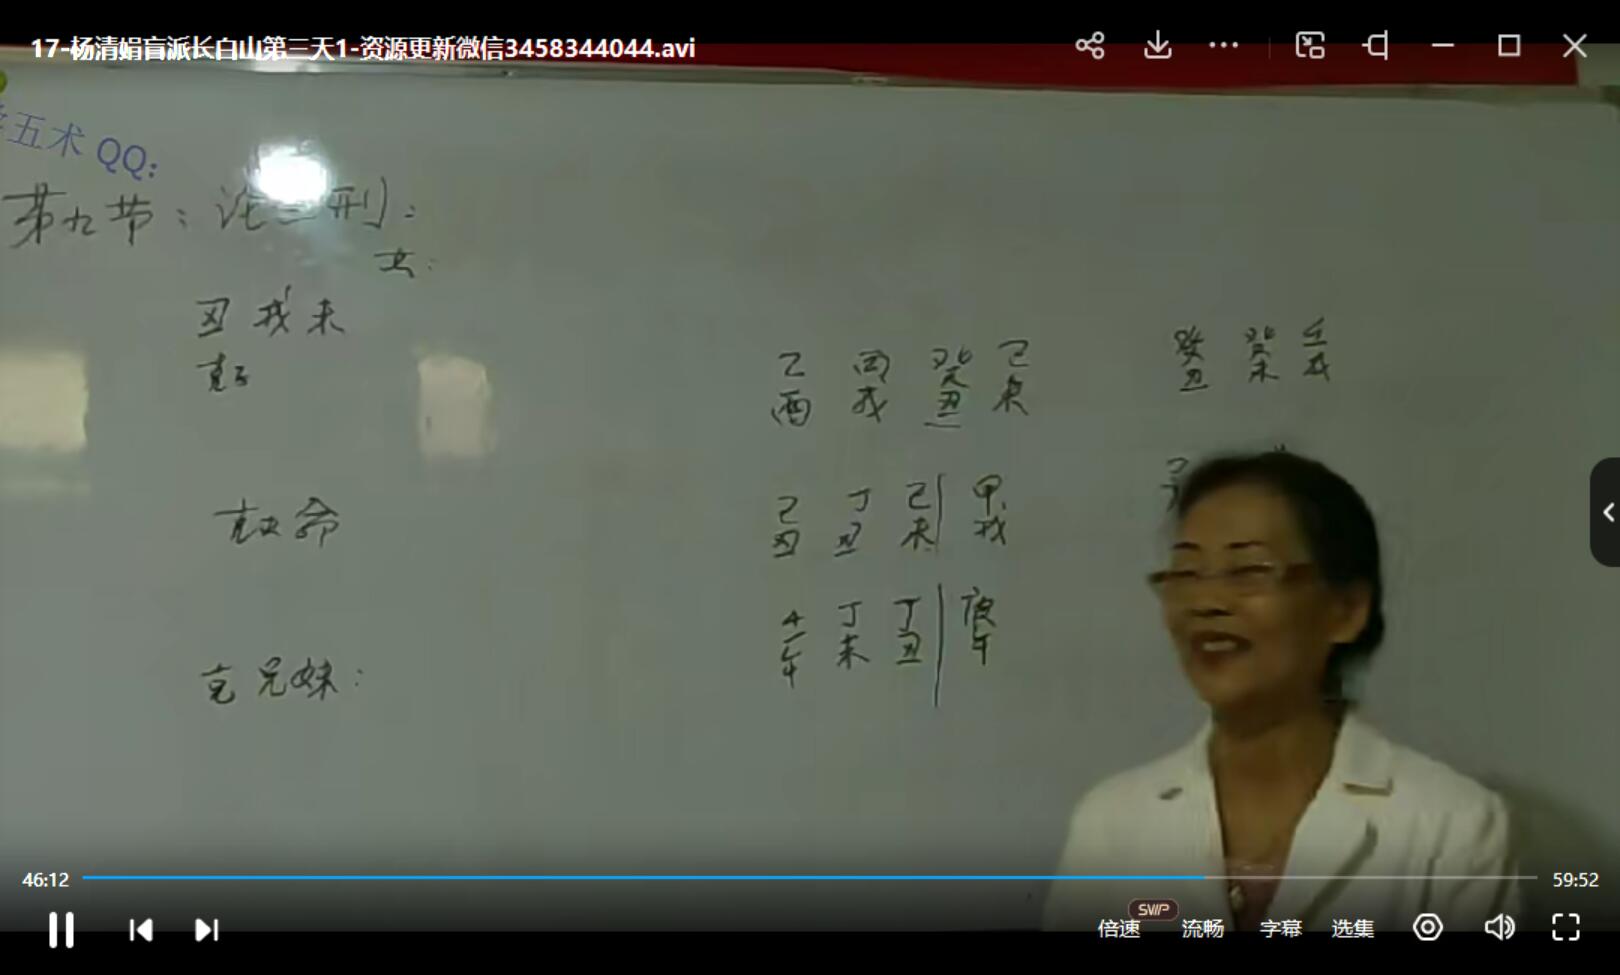 17-杨清娟盲派长白山第三天1-资源更新微信3458344044.avi
五术 QQ:
第九节：论三刑：
女：
丑 戌 未
克子
己 丙 癸 己
酉 戌 丑 未
癸 癸 壬
丑 未 戌
克夫命
己 丁 己 甲
丑 丑 未 戌
丁 丁 庚
午 未 丑 午
克兄妹：
46:12
59:52
SVIP
倍速 流畅 字幕 选集